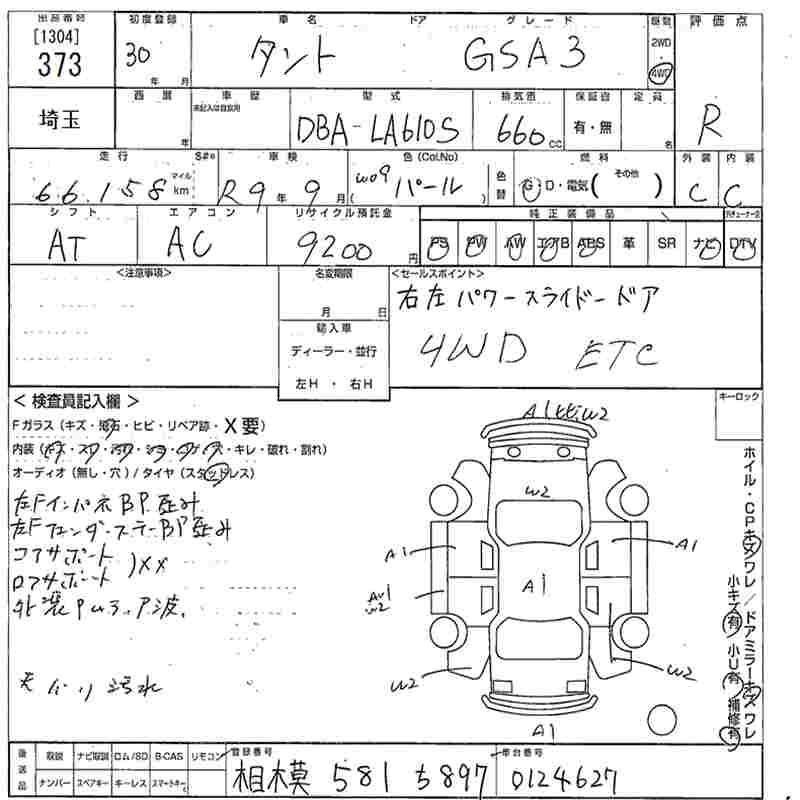 出品番号 初度登録 車名 ドア グレード 駆動 評価点
[1304] 373 30 年 月 タント GSA3 2WD 4WD R
埼玉 西暦 年 車歴 未記入は自家用 型式 DBA-LA610S 排気量 660 CC 保証書 有・無 定員 名
走行 66,158 マイル km S#* 車検 R9年9月 色(Col.No) W09 パール 色替 燃料 G・D・電気( その他 ) 外装 C 内装 C
シフト AT エアコン AC リサイクル預託金 9200円 純正装備品 PS PW AW エアB ABS 革 SR ナビ DTV
<注意事項> 名変期限 月 日 <セールスポイント>
右左パワースライドードア
輸入車
ディーラー・並行
左H・右H
4WD ETC
<検査員記入欄> キーロック
Fガラス(キズ・飛石・ヒビ・リペア跡・X要)
内装(キズ・スレ・汚れ・シミ・コゲ・穴・キレ・破れ・割れ)
オーディオ(無し・穴)/タイヤ(スタッドレス)
左FインパネBP歪み
左FフェンダーステーBP歪み
コアサポート
ロアサポート )XX
外装
汚れ
A1 ヒビ W2
W2
A1 A1
A1
W2
W2 W2
A1
ホイル・CPキズワレ/ドアミラーキズワレ
小キズ有 小U有 補修有
後送品 取説 ナビ取説 ロム/SD B-CAS リモコン 登録番号 車台番号
ナンバー スペアキー キーレス スマートキー 相模 581 ち897 0124627